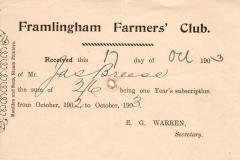 Framlingham Farmers' Club.
Received this 17 day of Oct 1903
of Mr. Jas Breese
the sum of 2/6 being one Year's subscription
from October, 1902 to October, 1903
E. G. WARREN,
Secretary.